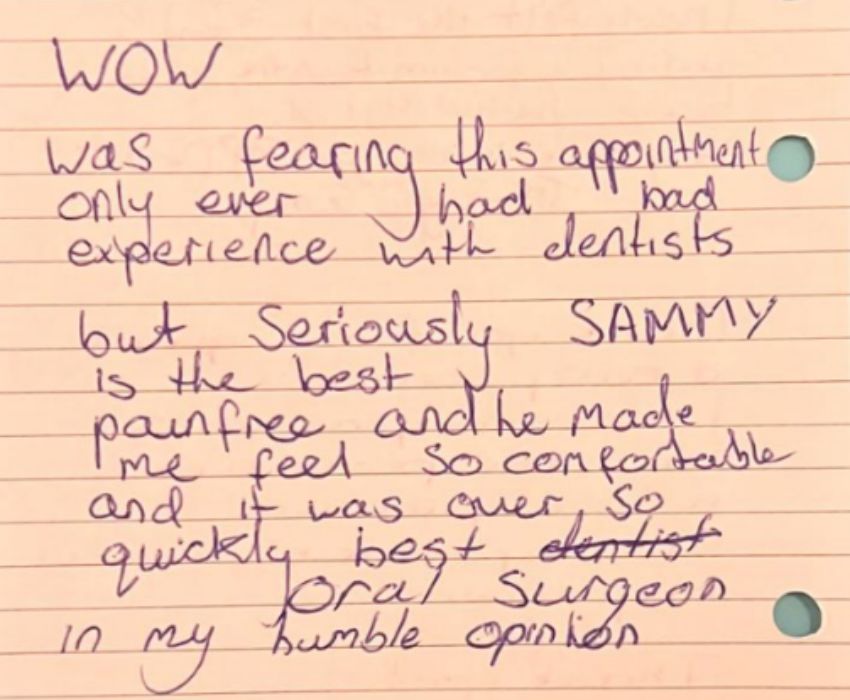 WOW
was fearing this appointment
only ever had bad
experience with dentists
but Seriously SAMMY
is the best
painfree and he made
me feel so comfortable
and it was over, so
quickly best dentist
oral surgeon
in my humble opinion